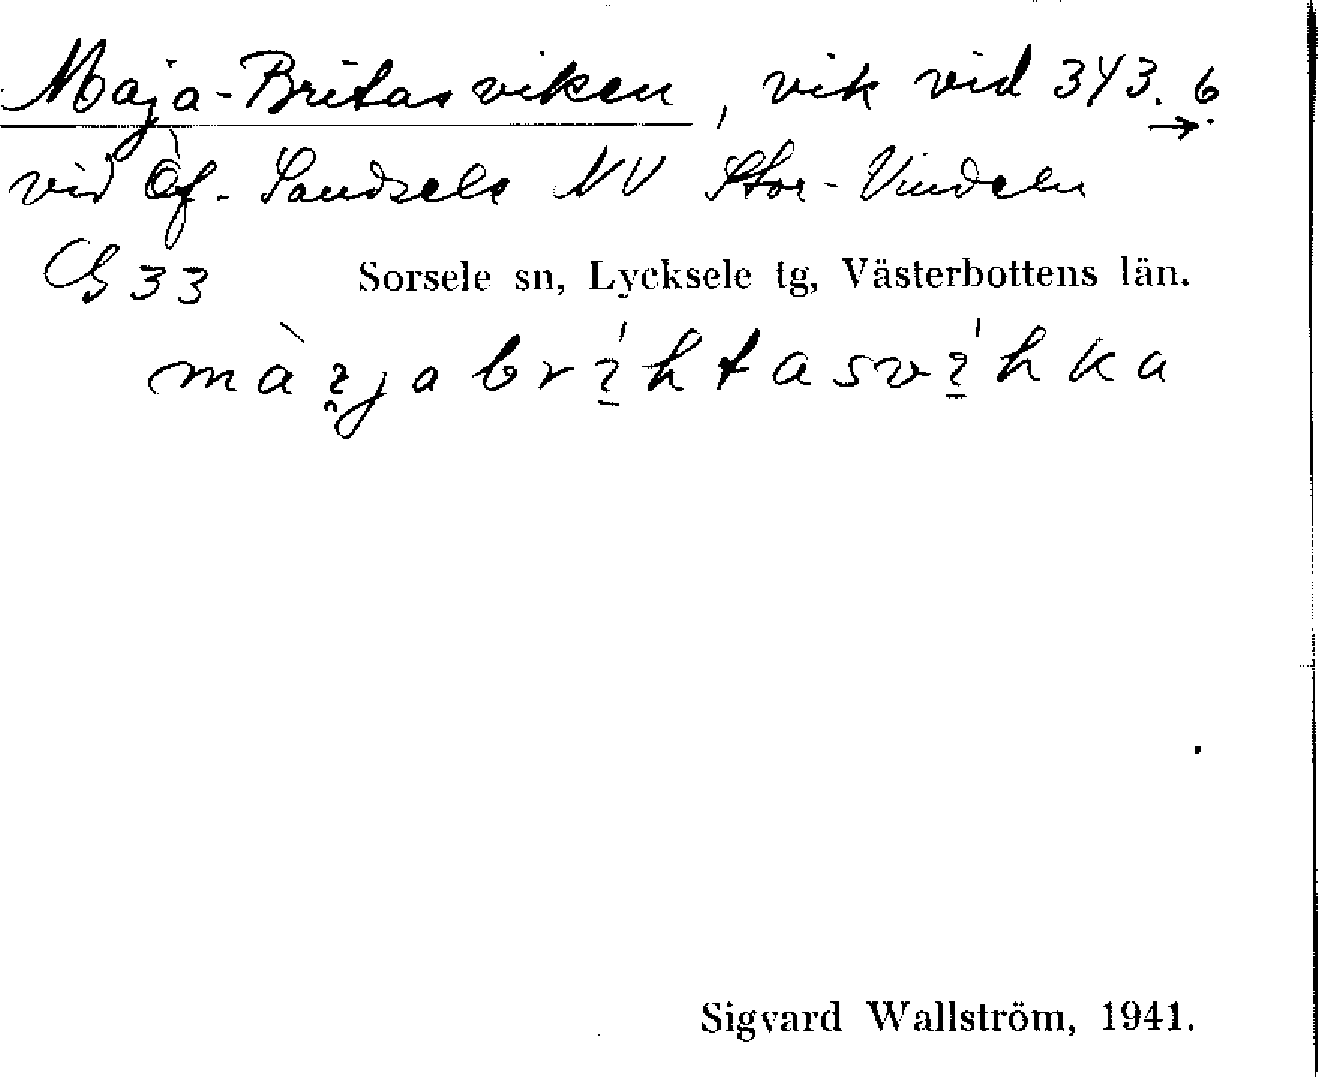 Maja-Britasviken, vik vid 343. 6
vid Öf. Sandsele NV Stor-Vindeln
G 33 Sorsele sn, Lycksele tg, Västerbottens län.
Sigvard Wallström, 1941.